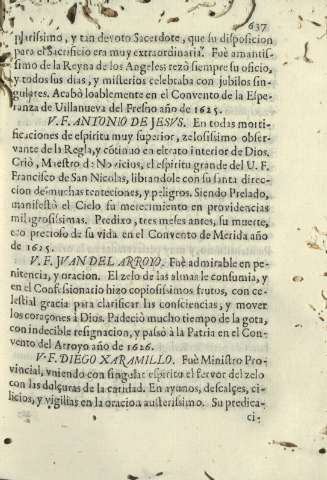 637
plarissimo, y tan devoto Sacerdote, que su disposicion
para el Sacrificio era muy extraordinaria. Fuè amantis-
simo de la Reyna de los Angeles; rezò siempre su oficio,
y todos sus dias, y misterios celebraba con jubilos sin-
gulares. Acabò loablemente en el Convento de la Espe-
ranza de Villanueva del Fresno año de 1625.
V. F. ANTONIO DE JESVS. En todas morti-
ficaciones de espiritu muy superior, zelosissimo obser-
vante de la Regla, y cõtinuo en el trato interior de Dios.
Criò, Maestro de Novicios, el espiritu grande del U. F.
Francisco de San Nicolas, librandole con su santa direc-
cion de muchas tenteciones, y peligros. Siendo Prelado,
manifestò el Cielo su merecimiento en providencias
milagrosissimas. Predixo, tres meses antes, su muerte,
eco precioso de su vida en el Convento de Merida año
de 1625.
V. F. JVAN DEL ARROYO. Fuè admirable en pe-
nitencia, y oracion. El zelo de las almas le consumia, y
en el Confessionario hizo copiosissimos frutos, con ce-
lestial gracia para clarificar las consciencias, y mover
los coraçones à Dios. Padeciò mucho tiempo de la gota,
con indecible resignacion, y pasò à la Patria en el Con-
vento del Arroyo año de 1626.
V. F. DIEGO XARAMILLO. Fuè Ministro Pro-
vincial, vniendo con singular espiritu el fervor del zelo
con las dulçuras de la caridad. En ayunos, descalçes, ci-
licios, y vigilias en la oracion austerissimo. Su predica-
ci-